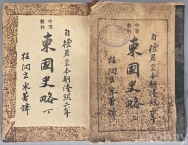 自檀君至本朝隆熙二年
中等
教科
東國史略
玄采著譯
自檀君至本朝隆熙二年
中等
教科
東國史略 下
玄采著譯